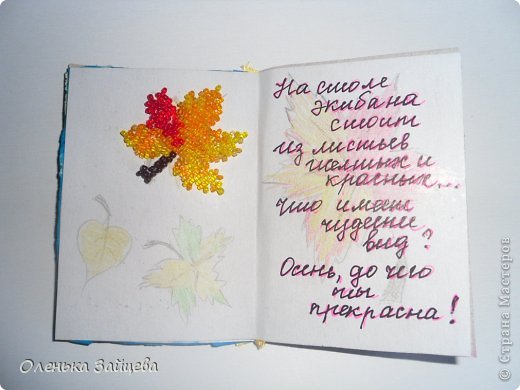 На столе
экибана
стоит
из листьев
желтых и
красных...
Что имеет
чудесный
вид?
Осень, до чего
ты
прекрасна!
Оленька Зайцева
© Страна Мастеров